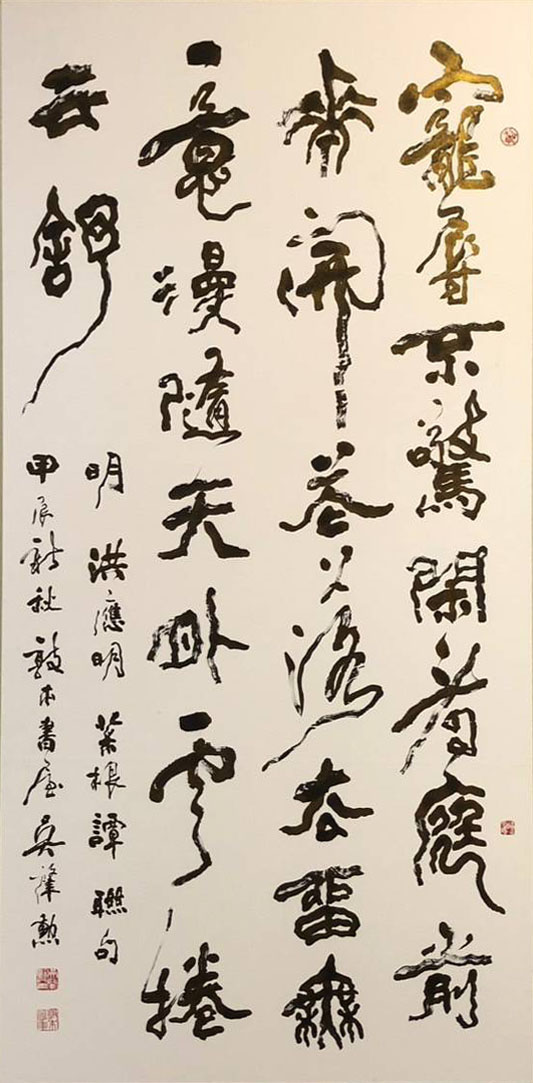 寵辱不驚閒看庭前
花開花落去留無
意漫隨天外雲捲
云舒
明 洪應明 菜根譚 聯句
甲辰新秋 敦本書屋吳肇勳